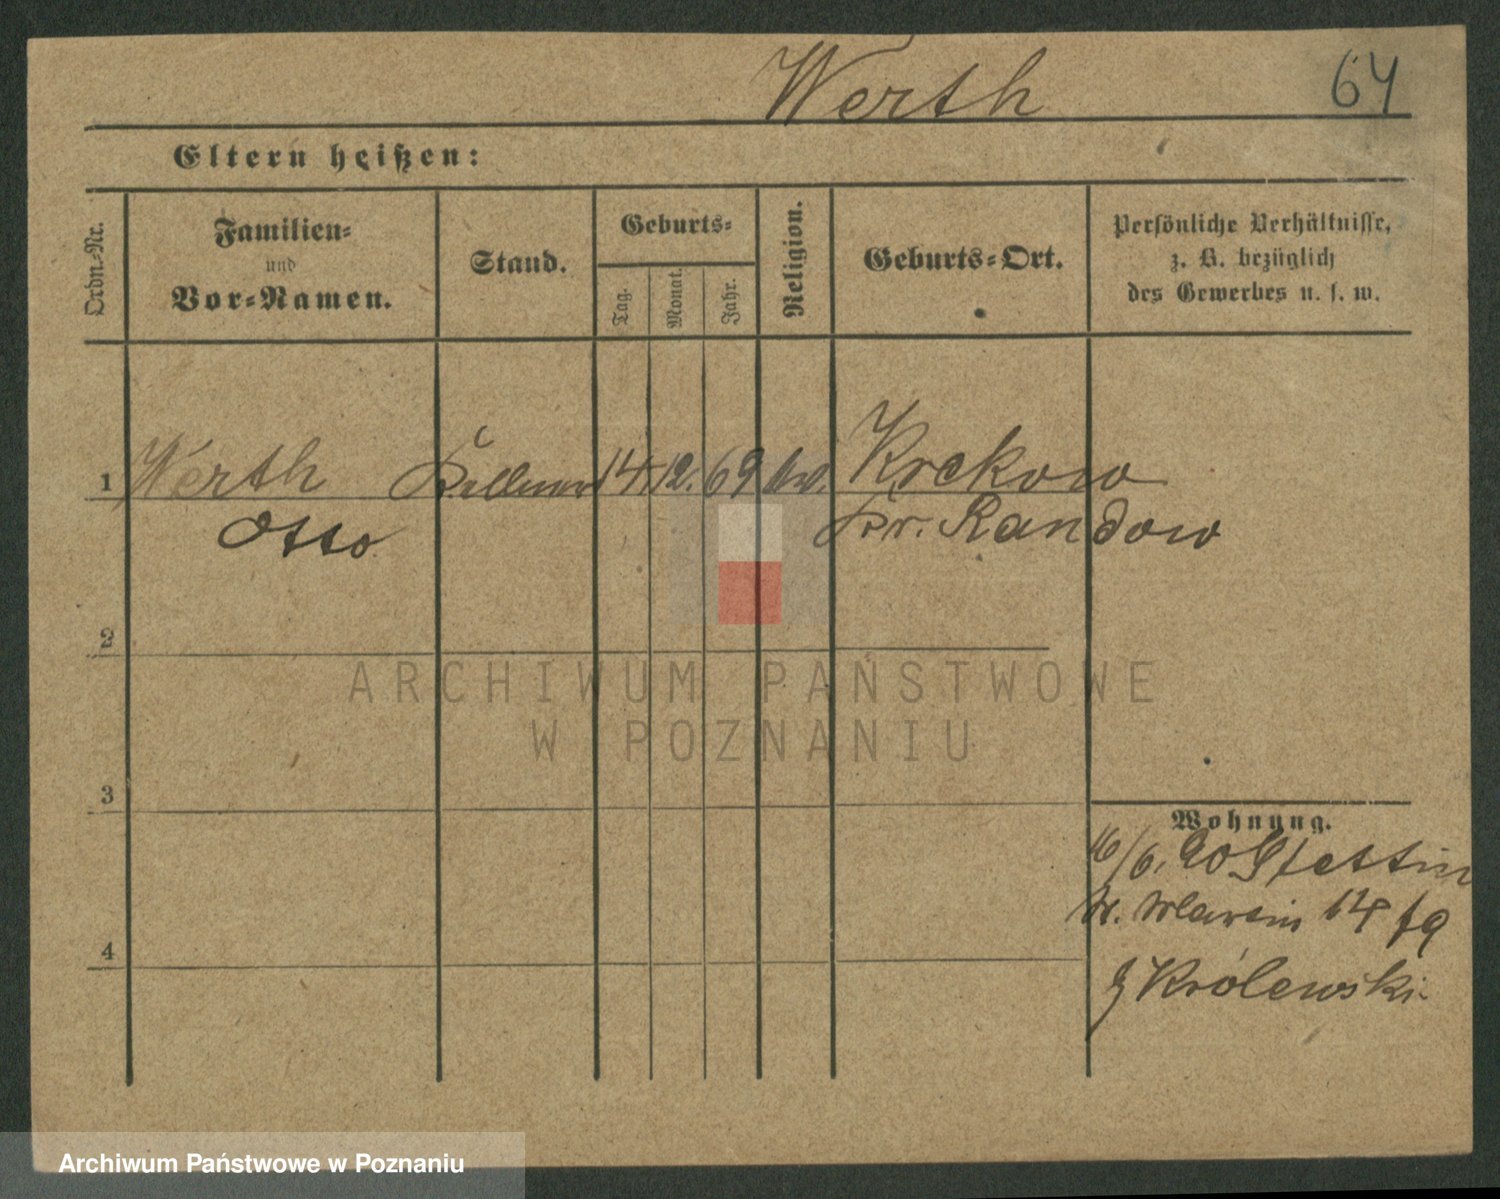 Werth
64
Eltern heißen:
Ordn.-Nr.
Familien-
und
Vor-Namen.
Stand.
Geburts-
Tag.
Monat.
Jahr.
Religion.
Geburts-Ort.
Persönliche Verhältnisse,
z. B. bezüglich
des Gewerbes u. s. w.
1 Werth Kellner 14. 12. 69 Krekow
Otto Kr. Randow
2
ARCHIWUM PAŃSTWOWE
W POZNANIU
3
Wohnung.
16/6. 90 Stettin
4
Królewski
Archiwum Państwowe w Poznaniu